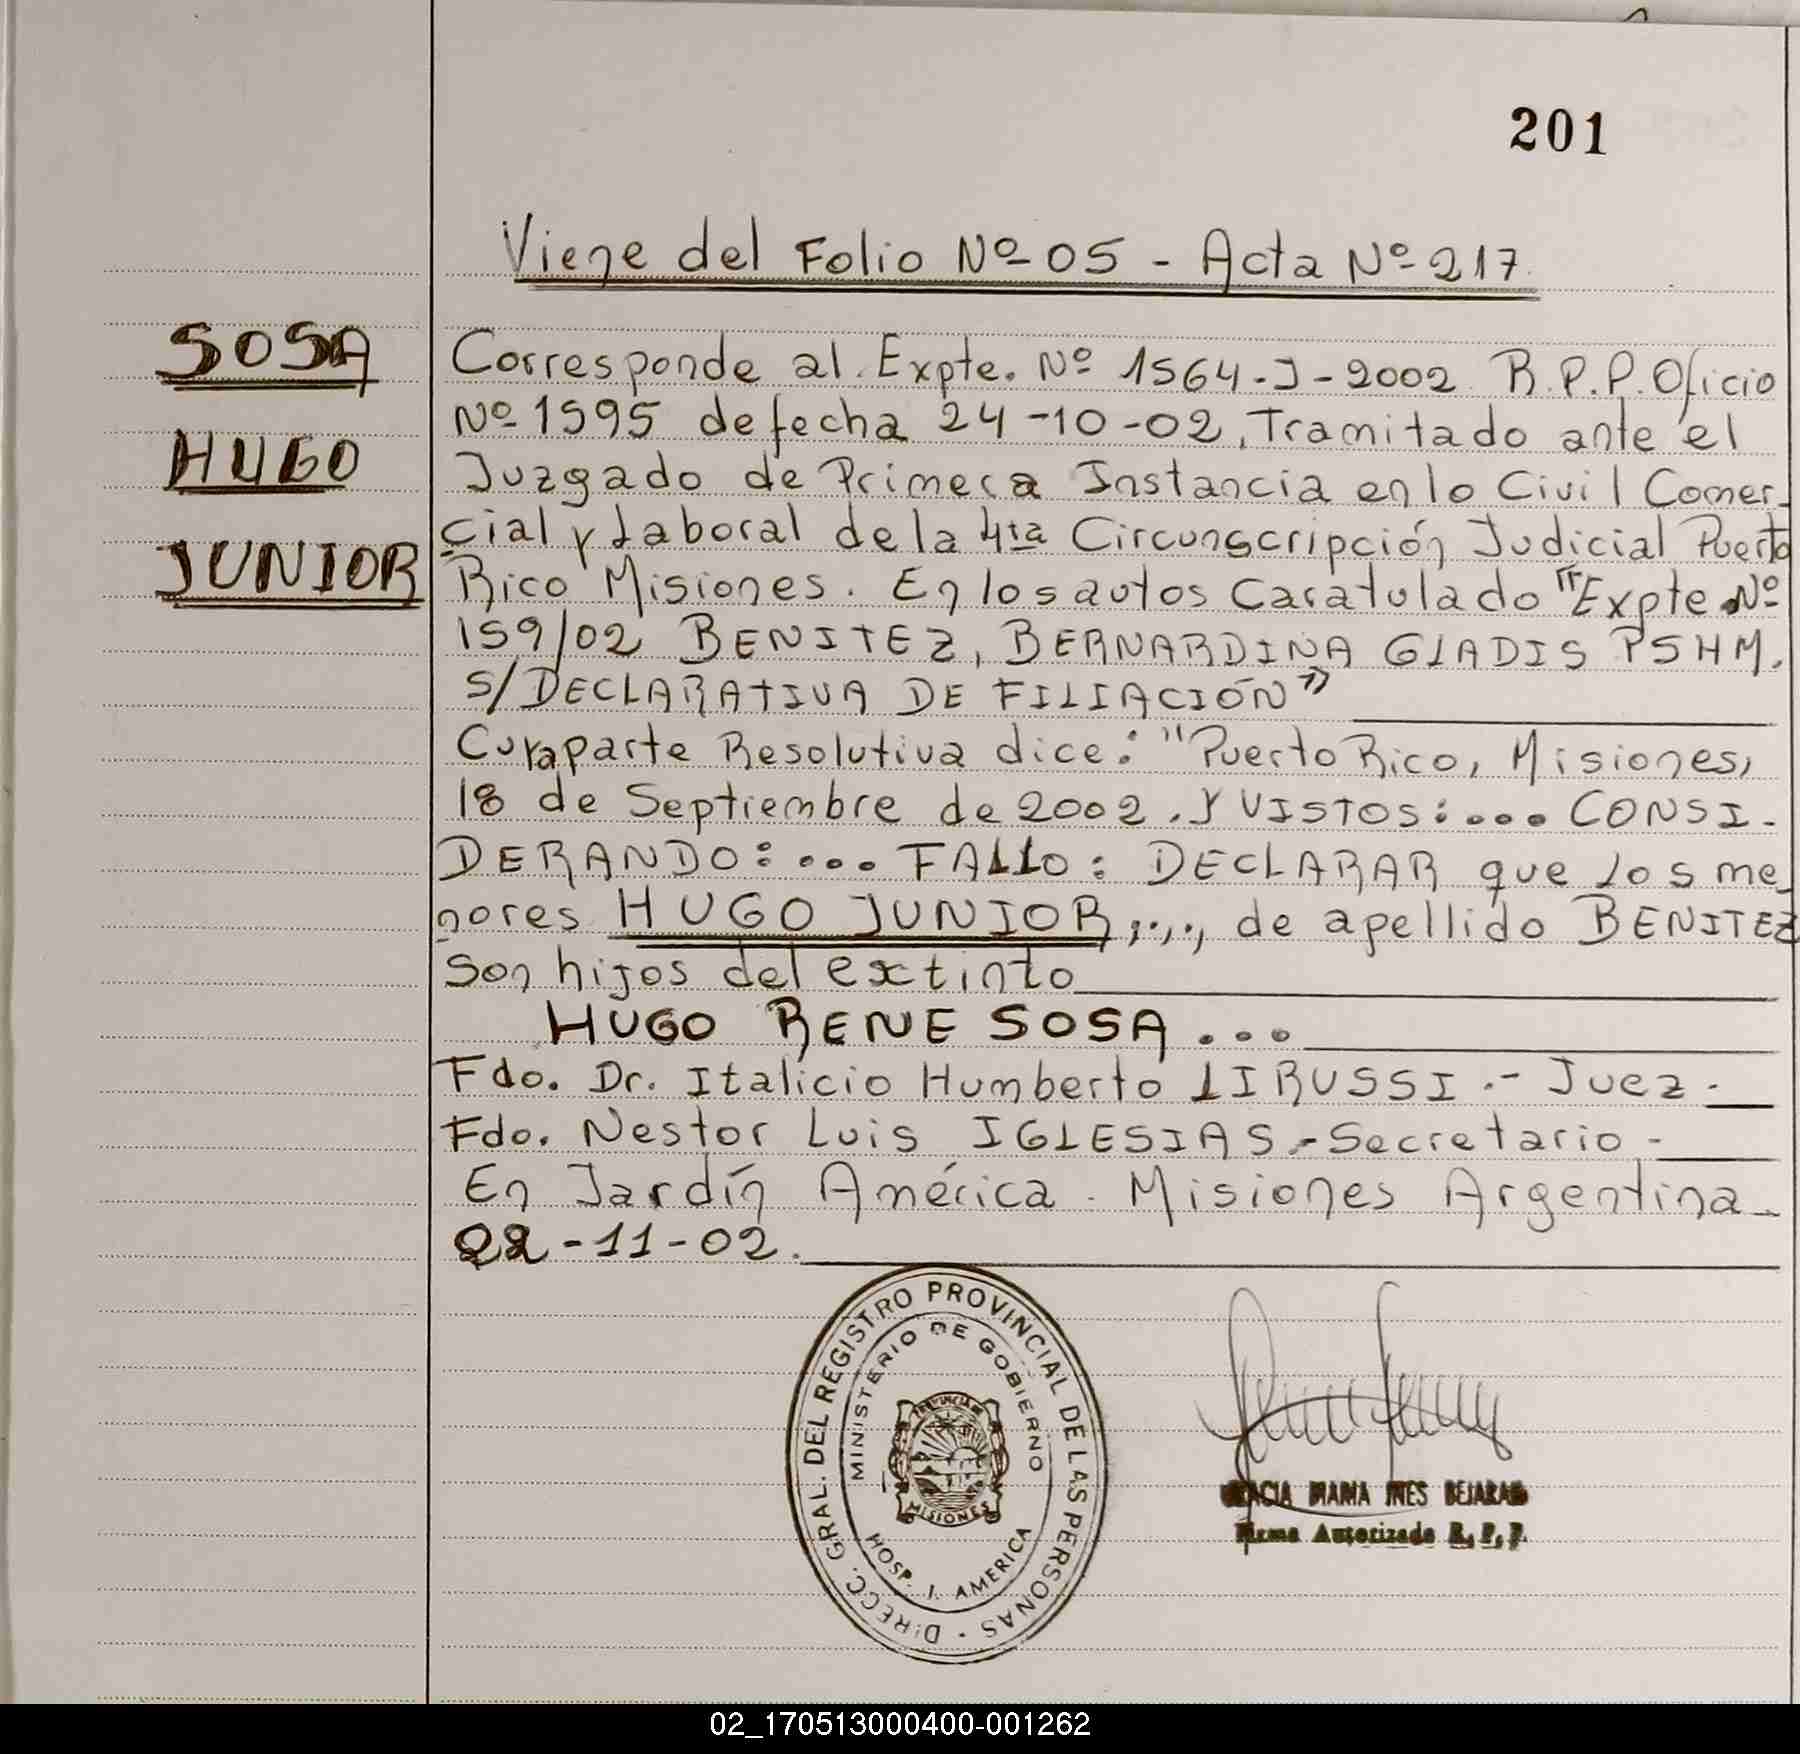 201
Viene del Folio Nº 05 - Acta Nº 217.
SOSA
HUGO
JUNIOR
Corresponde al Expte. Nº 1564-J-2002 R.P.P. Oficio
Nº 1595 de fecha 24-10-02, Tramitado ante el
Juzgado de Primera Instancia en lo Civil Comer-
cial y Laboral de la 4ta Circunscripción Judicial Puerto
Rico Misiones. En los autos Caratulado "Expte Nº
159/02 BENITEZ, BERNARDINA GLADIS PSHM.
S/DECLARATIVA DE FILIACIÓN"
Cuya parte Resolutiva dice: "Puerto Rico, Misiones,
18 de Septiembre de 2002. Y VISTOS:... CONSI-
DERANDO:... FALLO: DECLARAR que los me-
nores HUGO JUNIOR,..., de apellido BENITEZ
son hijos del extinto
HUGO RENE SOSA...
Fdo. Dr. Italicio Humberto LIRUSSI.- Juez.
Fdo. Nestor Luis IGLESIAS.-Secretario.-
En Jardín América. Misiones Argentina.
22-11-02.
DIRECC. GRAL. DEL REGISTRO PROVINCIAL DE LAS PERSONAS -
MINISTERIO DE GOBIERNO
PROVINCIA DE
MISIONES
HOSP. J. AMERICA
MARIA INES BEJARANO
Firma Autorizada R.P.P.
02_170513000400-001262